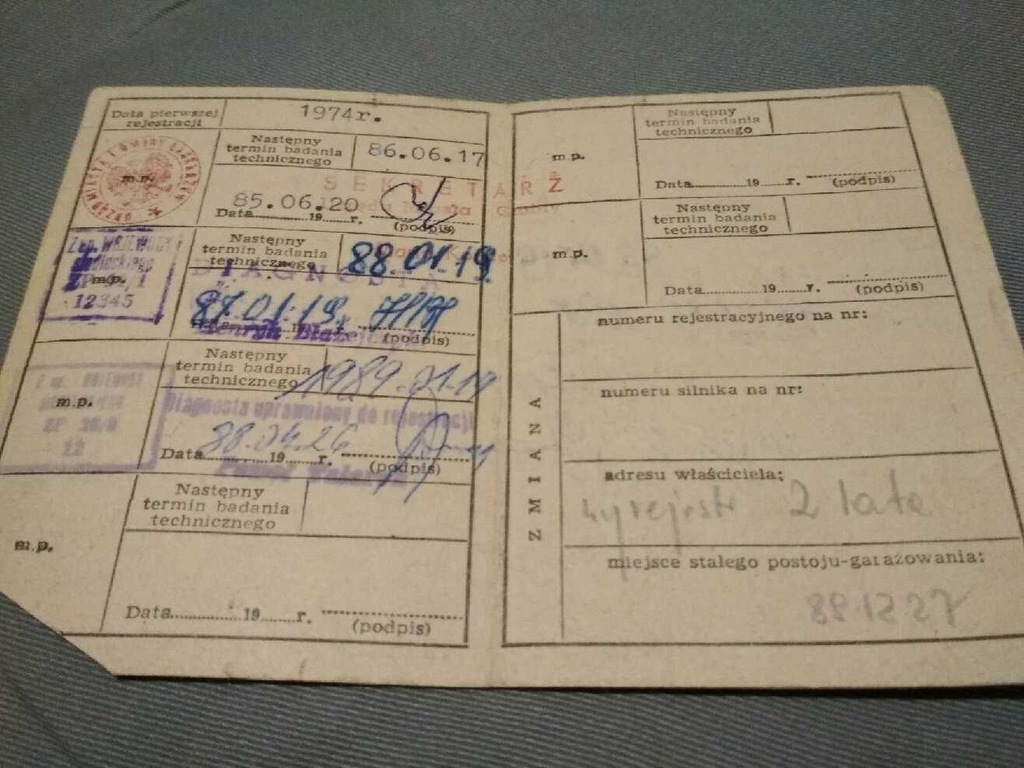 Data pierwszej
rejestracji
1974r.
m.p.
Następny
termin badania
technicznego
86.06.17
SEKRETARZ
Data 85.06.20 19 r.
(podpis)
Następny
termin badania
technicznego
88.01.19
m.p.
12345
DIAGNOSTA
87.01.19.
(podpis)
Następny
termin badania
technicznego
1989-01-19
m.p.
Diagnosta uprawniony do rejestracji
88.04.26
Data 19 r.
(podpis)
Następny
termin badania
technicznego
m.p.
Data 19 r.
(podpis)
Następny
termin badania
technicznego
m.p.
Data 19 r. (podpis)
Następny
termin badania
technicznego
m.p.
Data 19 r. (podpis)
ZMIANA
numeru rejestracyjnego na nr:
numeru silnika na nr:
adresu właściciela:
wyrejestr 2 lata
miejsce stałego postoju-garażowania:
89.12.27